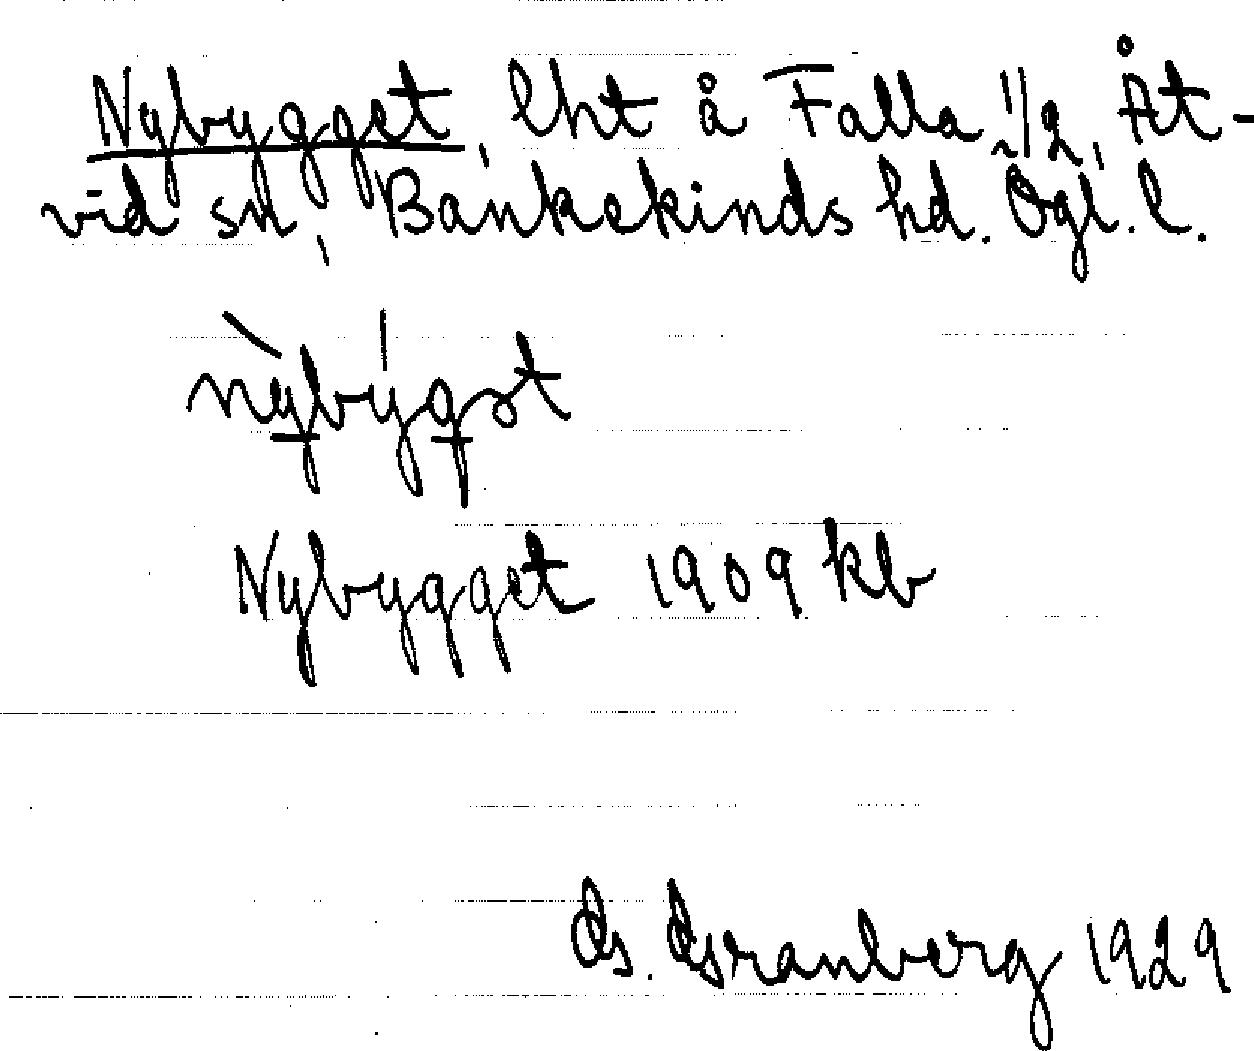 Nybygget, lht å Falla 1/2, Åt-
vid sn, Bankekinds hd. Ögl. l.
nỳbýgət
Nybygget 1909 kb
G. Granberg 1929